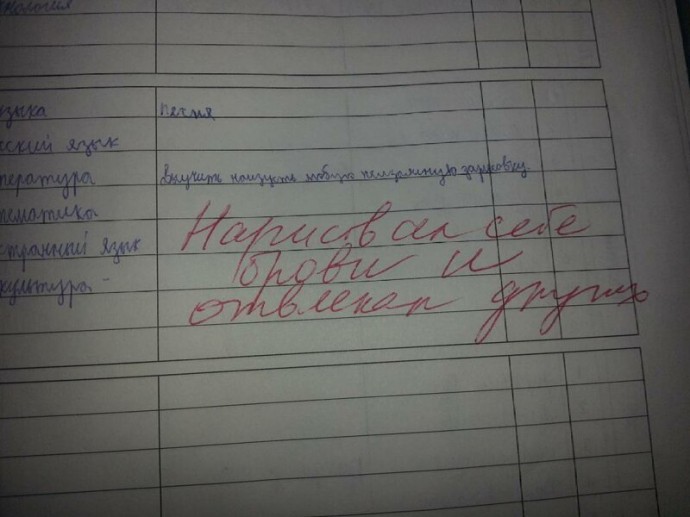 ология
узыка песня
сский язык
тература выучить наизусть любую пейзажную зарисовку
тематика
странный язык
культура
Нарисовал себе
брови и
отвлекал других